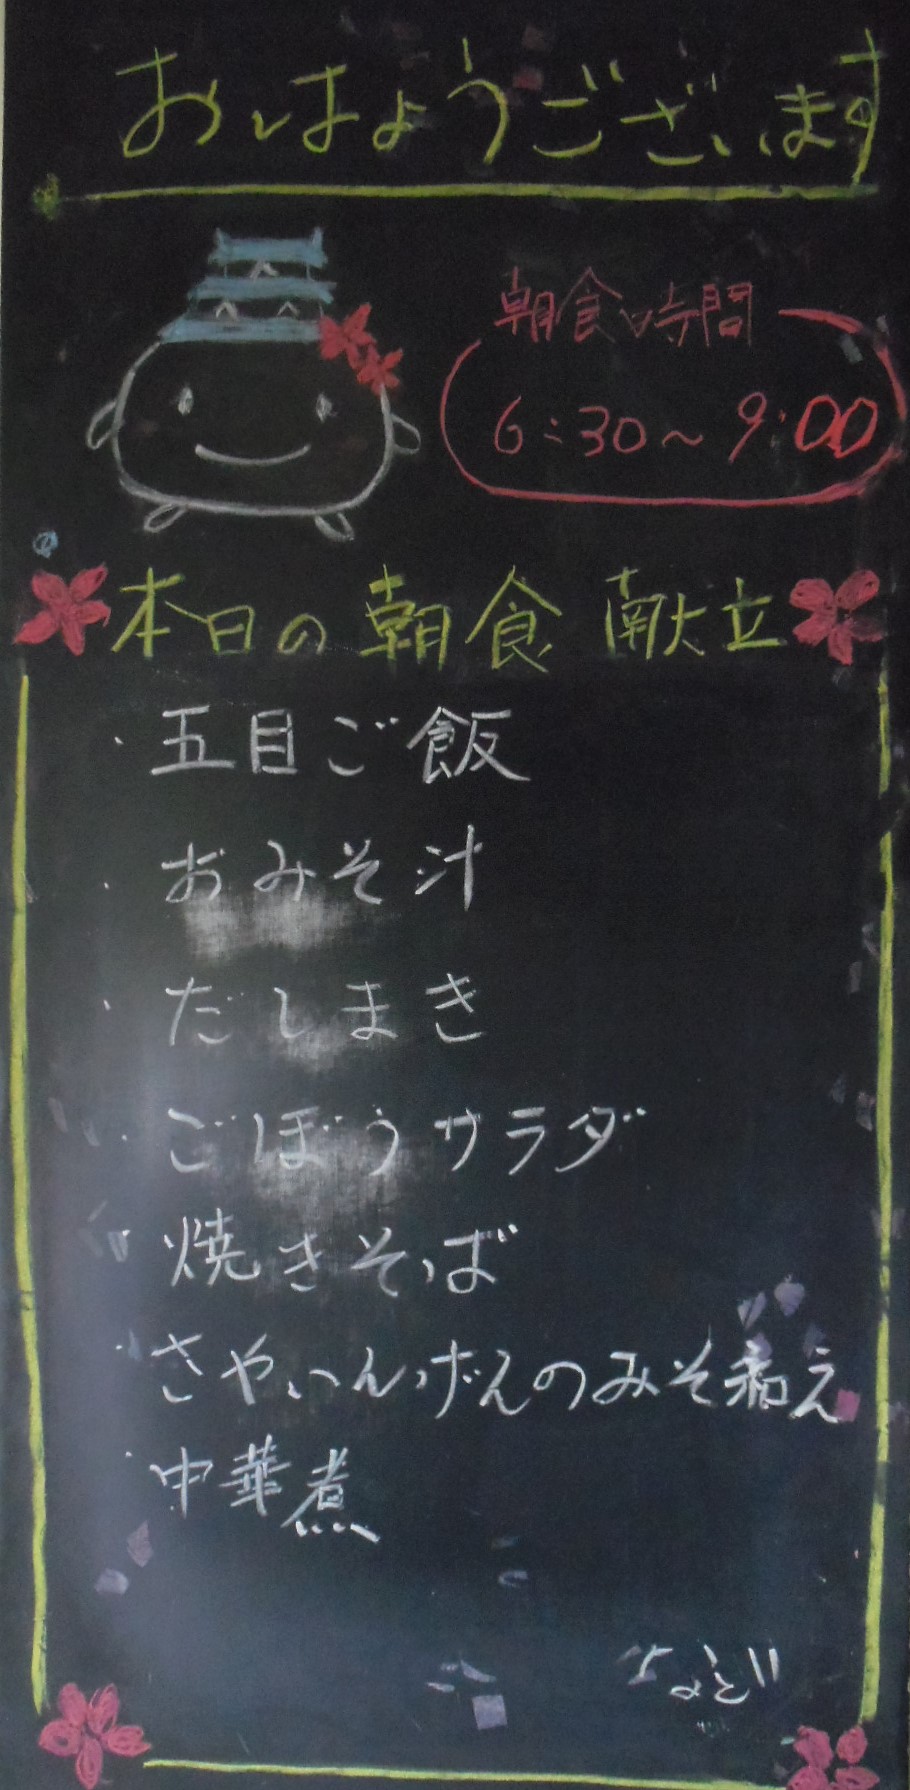 おはようございます
朝食時間
6:30～9:00
本日の朝食 献立
・五目ご飯
・おみそ汁
・だしまき
・ごぼうサラダ
・焼きそば
・さやいんげんのみそ和え
・中華煮
など!!